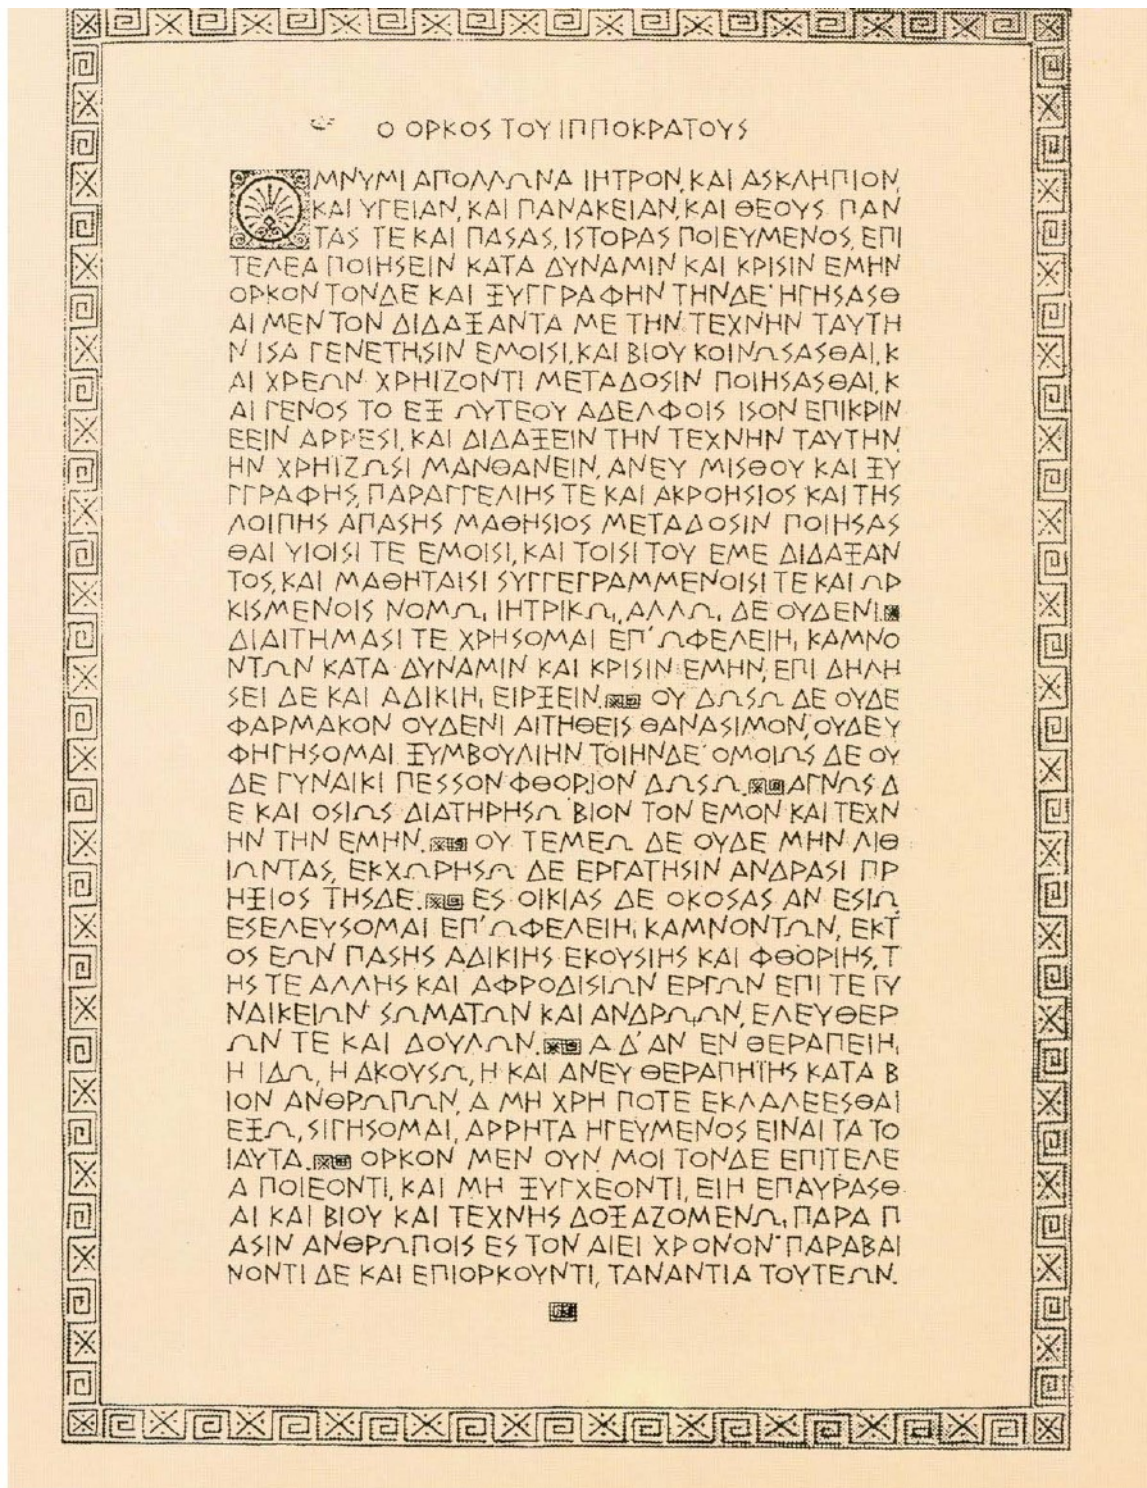 Ο ΟΡΚΟΣ ΤΟΥ ΙΠΠΟΚΡΑΤΟΥΣ
ΟΜΝΥΜΙ ΑΠΟΛΛΩΝΑ ΙΗΤΡΟΝ, ΚΑΙ ΑΣΚΛΗΠΙΟΝ,
ΚΑΙ ΥΓΕΙΑΝ, ΚΑΙ ΠΑΝΑΚΕΙΑΝ, ΚΑΙ ΘΕΟΥΣ ΠΑΝ
ΤΑΣ ΤΕ ΚΑΙ ΠΑΣΑΣ, ΙΣΤΟΡΑΣ ΠΟΙΕΥΜΕΝΟΣ, ΕΠΙ
ΤΕΛΕΑ ΠΟΙΗΣΕΙΝ ΚΑΤΑ ΔΥΝΑΜΙΝ ΚΑΙ ΚΡΙΣΙΝ ΕΜΗΝ
ΟΡΚΟΝ ΤΟΝΔΕ ΚΑΙ ΞΥΓΓΡΑΦΗΝ ΤΗΝΔΕ· ΗΓΗΣΑΣΘ
ΑΙ ΜΕΝ ΤΟΝ ΔΙΔΑΞΑΝΤΑ ΜΕ ΤΗΝ ΤΕΧΝΗΝ ΤΑΥΤΗ
Ν ΙΣΑ ΓΕΝΕΤΗΣΙΝ ΕΜΟΙΣΙ, ΚΑΙ ΒΙΟΥ ΚΟΙΝΩΣΑΣΘΑΙ, Κ
ΑΙ ΧΡΕΩΝ ΧΡΗΙΖΟΝΤΙ ΜΕΤΑΔΟΣΙΝ ΠΟΙΗΣΑΣΘΑΙ, Κ
ΑΙ ΓΕΝΟΣ ΤΟ ΕΞ ΩΥΤΕΟΥ ΑΔΕΛΦΟΙΣ ΙΣΟΝ ΕΠΙΚΡΙΝ
ΕΕΙΝ ΑΡΡΕΣΙ, ΚΑΙ ΔΙΔΑΞΕΙΝ ΤΗΝ ΤΕΧΝΗΝ ΤΑΥΤΗΝ,
ΗΝ ΧΡΗΙΖΩΣΙ ΜΑΝΘΑΝΕΙΝ, ΑΝΕΥ ΜΙΣΘΟΥ ΚΑΙ ΞΥ
ΓΓΡΑΦΗΣ, ΠΑΡΑΓΓΕΛΙΗΣ ΤΕ ΚΑΙ ΑΚΡΟΗΣΙΟΣ ΚΑΙ ΤΗΣ
ΛΟΙΠΗΣ ΑΠΑΣΗΣ ΜΑΘΗΣΙΟΣ ΜΕΤΑΔΟΣΙΝ ΠΟΙΗΣΑΣ
ΘΑΙ ΥΙΟΙΣΙ ΤΕ ΕΜΟΙΣΙ, ΚΑΙ ΤΟΙΣΙ ΤΟΥ ΕΜΕ ΔΙΔΑΞΑΝ
ΤΟΣ, ΚΑΙ ΜΑΘΗΤΑΙΣΙ ΣΥΓΓΕΓΡΑΜΜΕΝΟΙΣΙ ΤΕ ΚΑΙ ΩΡ
ΚΙΣΜΕΝΟΙΣ ΝΟΜΩι ΙΗΤΡΙΚΩι, ΑΛΛΩι ΔΕ ΟΥΔΕΝΙ.
ΔΙΑΙΤΗΜΑΣΙ ΤΕ ΧΡΗΣΟΜΑΙ ΕΠ' ΩΦΕΛΕΙΗι ΚΑΜΝΟ
ΝΤΩΝ ΚΑΤΑ ΔΥΝΑΜΙΝ ΚΑΙ ΚΡΙΣΙΝ ΕΜΗΝ, ΕΠΙ ΔΗΛΗ
ΣΕΙ ΔΕ ΚΑΙ ΑΔΙΚΙΗι ΕΙΡΞΕΙΝ. ΟΥ ΔΩΣΩ ΔΕ ΟΥΔΕ
ΦΑΡΜΑΚΟΝ ΟΥΔΕΝΙ ΑΙΤΗΘΕΙΣ ΘΑΝΑΣΙΜΟΝ, ΟΥΔΕ Υ
ΦΗΓΗΣΟΜΑΙ ΞΥΜΒΟΥΛΙΗΝ ΤΟΙΗΝΔΕ· ΟΜΟΙΩΣ ΔΕ ΟΥ
ΔΕ ΓΥΝΑΙΚΙ ΠΕΣΣΟΝ ΦΘΟΡΙΟΝ ΔΩΣΩ. ΑΓΝΩΣ Δ
Ε ΚΑΙ ΟΣΙΩΣ ΔΙΑΤΗΡΗΣΩ ΒΙΟΝ ΤΟΝ ΕΜΟΝ ΚΑΙ ΤΕΧΝ
ΗΝ ΤΗΝ ΕΜΗΝ. ΟΥ ΤΕΜΕΩ ΔΕ ΟΥΔΕ ΜΗΝ ΛΙΘ
ΙΩΝΤΑΣ, ΕΚΧΩΡΗΣΩ ΔΕ ΕΡΓΑΤΗΣΙΝ ΑΝΔΡΑΣΙ ΠΡ
ΗΞΙΟΣ ΤΗΣΔΕ. ΕΣ ΟΙΚΙΑΣ ΔΕ ΟΚΟΣΑΣ ΑΝ ΕΣΙΩ,
ΕΣΕΛΕΥΣΟΜΑΙ ΕΠ' ΩΦΕΛΕΙΗι ΚΑΜΝΟΝΤΩΝ, ΕΚΤ
ΟΣ ΕΩΝ ΠΑΣΗΣ ΑΔΙΚΙΗΣ ΕΚΟΥΣΙΗΣ ΚΑΙ ΦΘΟΡΙΗΣ, Τ
ΗΣ ΤΕ ΑΛΛΗΣ ΚΑΙ ΑΦΡΟΔΙΣΙΩΝ ΕΡΓΩΝ ΕΠΙ ΤΕ ΓΥ
ΝΑΙΚΕΙΩΝ ΣΩΜΑΤΩΝ ΚΑΙ ΑΝΔΡΩιΩΝ, ΕΛΕΥΘΕΡ
ΩΝ ΤΕ ΚΑΙ ΔΟΥΛΩΝ. Α Δ' ΑΝ ΕΝ ΘΕΡΑΠΕΙΗι
Η ΙΔΩ, Η ΑΚΟΥΣΩ, Η ΚΑΙ ΑΝΕΥ ΘΕΡΑΠΗΪΗΣ ΚΑΤΑ Β
ΙΟΝ ΑΝΘΡΩΠΩΝ, Α ΜΗ ΧΡΗ ΠΟΤΕ ΕΚΛΑΛΕΕΣΘΑΙ
ΕΞΩ, ΣΙΓΗΣΟΜΑΙ, ΑΡΡΗΤΑ ΗΓΕΥΜΕΝΟΣ ΕΙΝΑΙ ΤΑ ΤΟ
ΙΑΥΤΑ. ΟΡΚΟΝ ΜΕΝ ΟΥΝ ΜΟΙ ΤΟΝΔΕ ΕΠΙΤΕΛΕ
Α ΠΟΙΕΟΝΤΙ, ΚΑΙ ΜΗ ΞΥΓΧΕΟΝΤΙ, ΕΙΗ ΕΠΑΥΡΑΣΘ
ΑΙ ΚΑΙ ΒΙΟΥ ΚΑΙ ΤΕΧΝΗΣ ΔΟΞΑΖΟΜΕΝΩι ΠΑΡΑ Π
ΑΣΙΝ ΑΝΘΡΩΠΟΙΣ ΕΣ ΤΟΝ ΑΙΕΙ ΧΡΟΝΟΝ· ΠΑΡΑΒΑΙ
ΝΟΝΤΙ ΔΕ ΚΑΙ ΕΠΙΟΡΚΟΥΝΤΙ, ΤΑΝΑΝΤΙΑ ΤΟΥΤΕΩΝ.